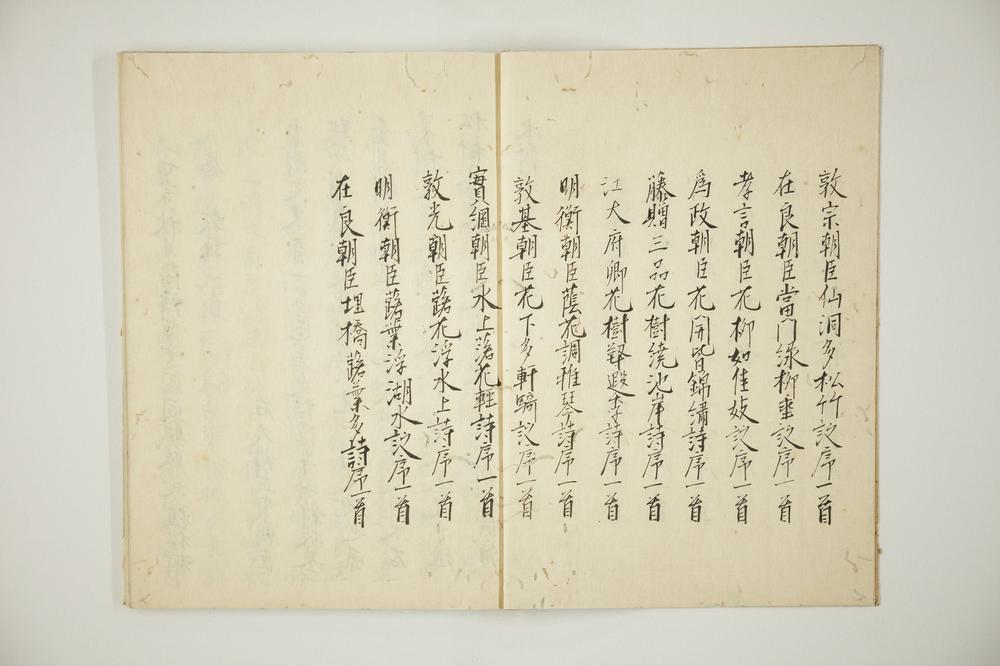 敦宗朝臣仙洞多松竹詩序一首
在良朝臣當門緑柳垂詩序一首
孝言朝臣花柳如佳妓詩序一首
為政朝臣花開皆錦繍詩序一首
藤贈三品花樹繞池岸詩序一首
江大府卿花樹契遐年詩序一首
明衡朝臣蔭花調雅琴詩序一首
敦基朝臣花下多軒騎詩序一首
實綱朝臣水上落花軽詩序一首
敦光朝臣落花浮水上詩序一首
明衡朝臣落葉浮湖水詩序一首
在良朝臣埋橋落葉多詩序一首